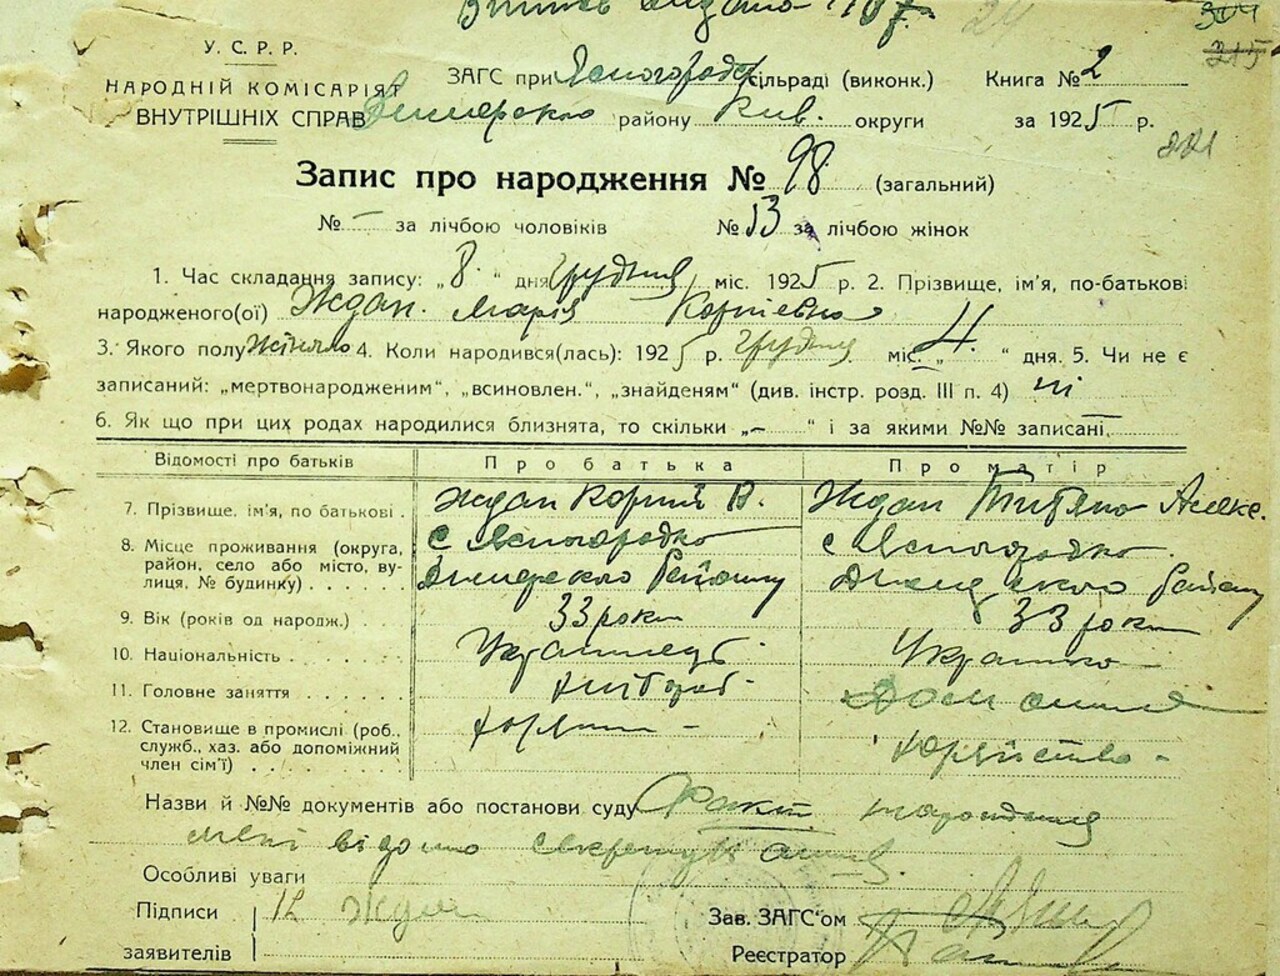 У.С.Р.Р.
НАРОДНІЙ КОМІСАРІЯТ
ВНУТРІШНІХ СПРАВ
ЗАГС при Ясногородс. сільраді (виконк.) Книга № 2
Димерского району Київ. округи за 1925 р.
Запис про народження № 98 (загальний)
№ – за лічбою чоловіків № 53 за лічбою жінок
1. Час складання запису: „8" дня грудня міс. 1925 р. 2. Прізвище, ім'я, по-батькові
народженого(ої) Ждан. Марія Корніевна
3. Якого полу жіняло 4. Коли народився(лась): 1925 р. грудня міс. „4." дня. 5. Чи не є
записаний: „мертвонародженим", „всиновлен.", „знайденям" (див. інстр. розд. III п. 4) ні
6. Як що при цих родах народилися близнята, то скільки „–" і за якими №№ записані –
Відомості про батьків Про батька Про матір
7. Прізвище, ім'я, по батькові . Ждан Корній В. Ждан Титяна Алекс.
8. Місце проживання (округа, район, село або місто, вулиця, № будинку) . . . . . с Ясногородка Димерского Району с Ясногородка. Димерского Району
9. Вік (років од народж.) . . . 33 роки 33 роки
10. Національність . . . . . . . Українець Українка
11. Головне заняття . . . . . . хлібороб. Домашня
12. Становище в промислі (роб., служб., хаз. або допоміжний член сім'ї) . . . . . . . .
Назви й №№ документів або постанови суду Факт народження
мені відомо секретарь
Особливі уваги
Підписи
заявителів К Ждан
Зав. ЗАГС'ом
Реєстратор